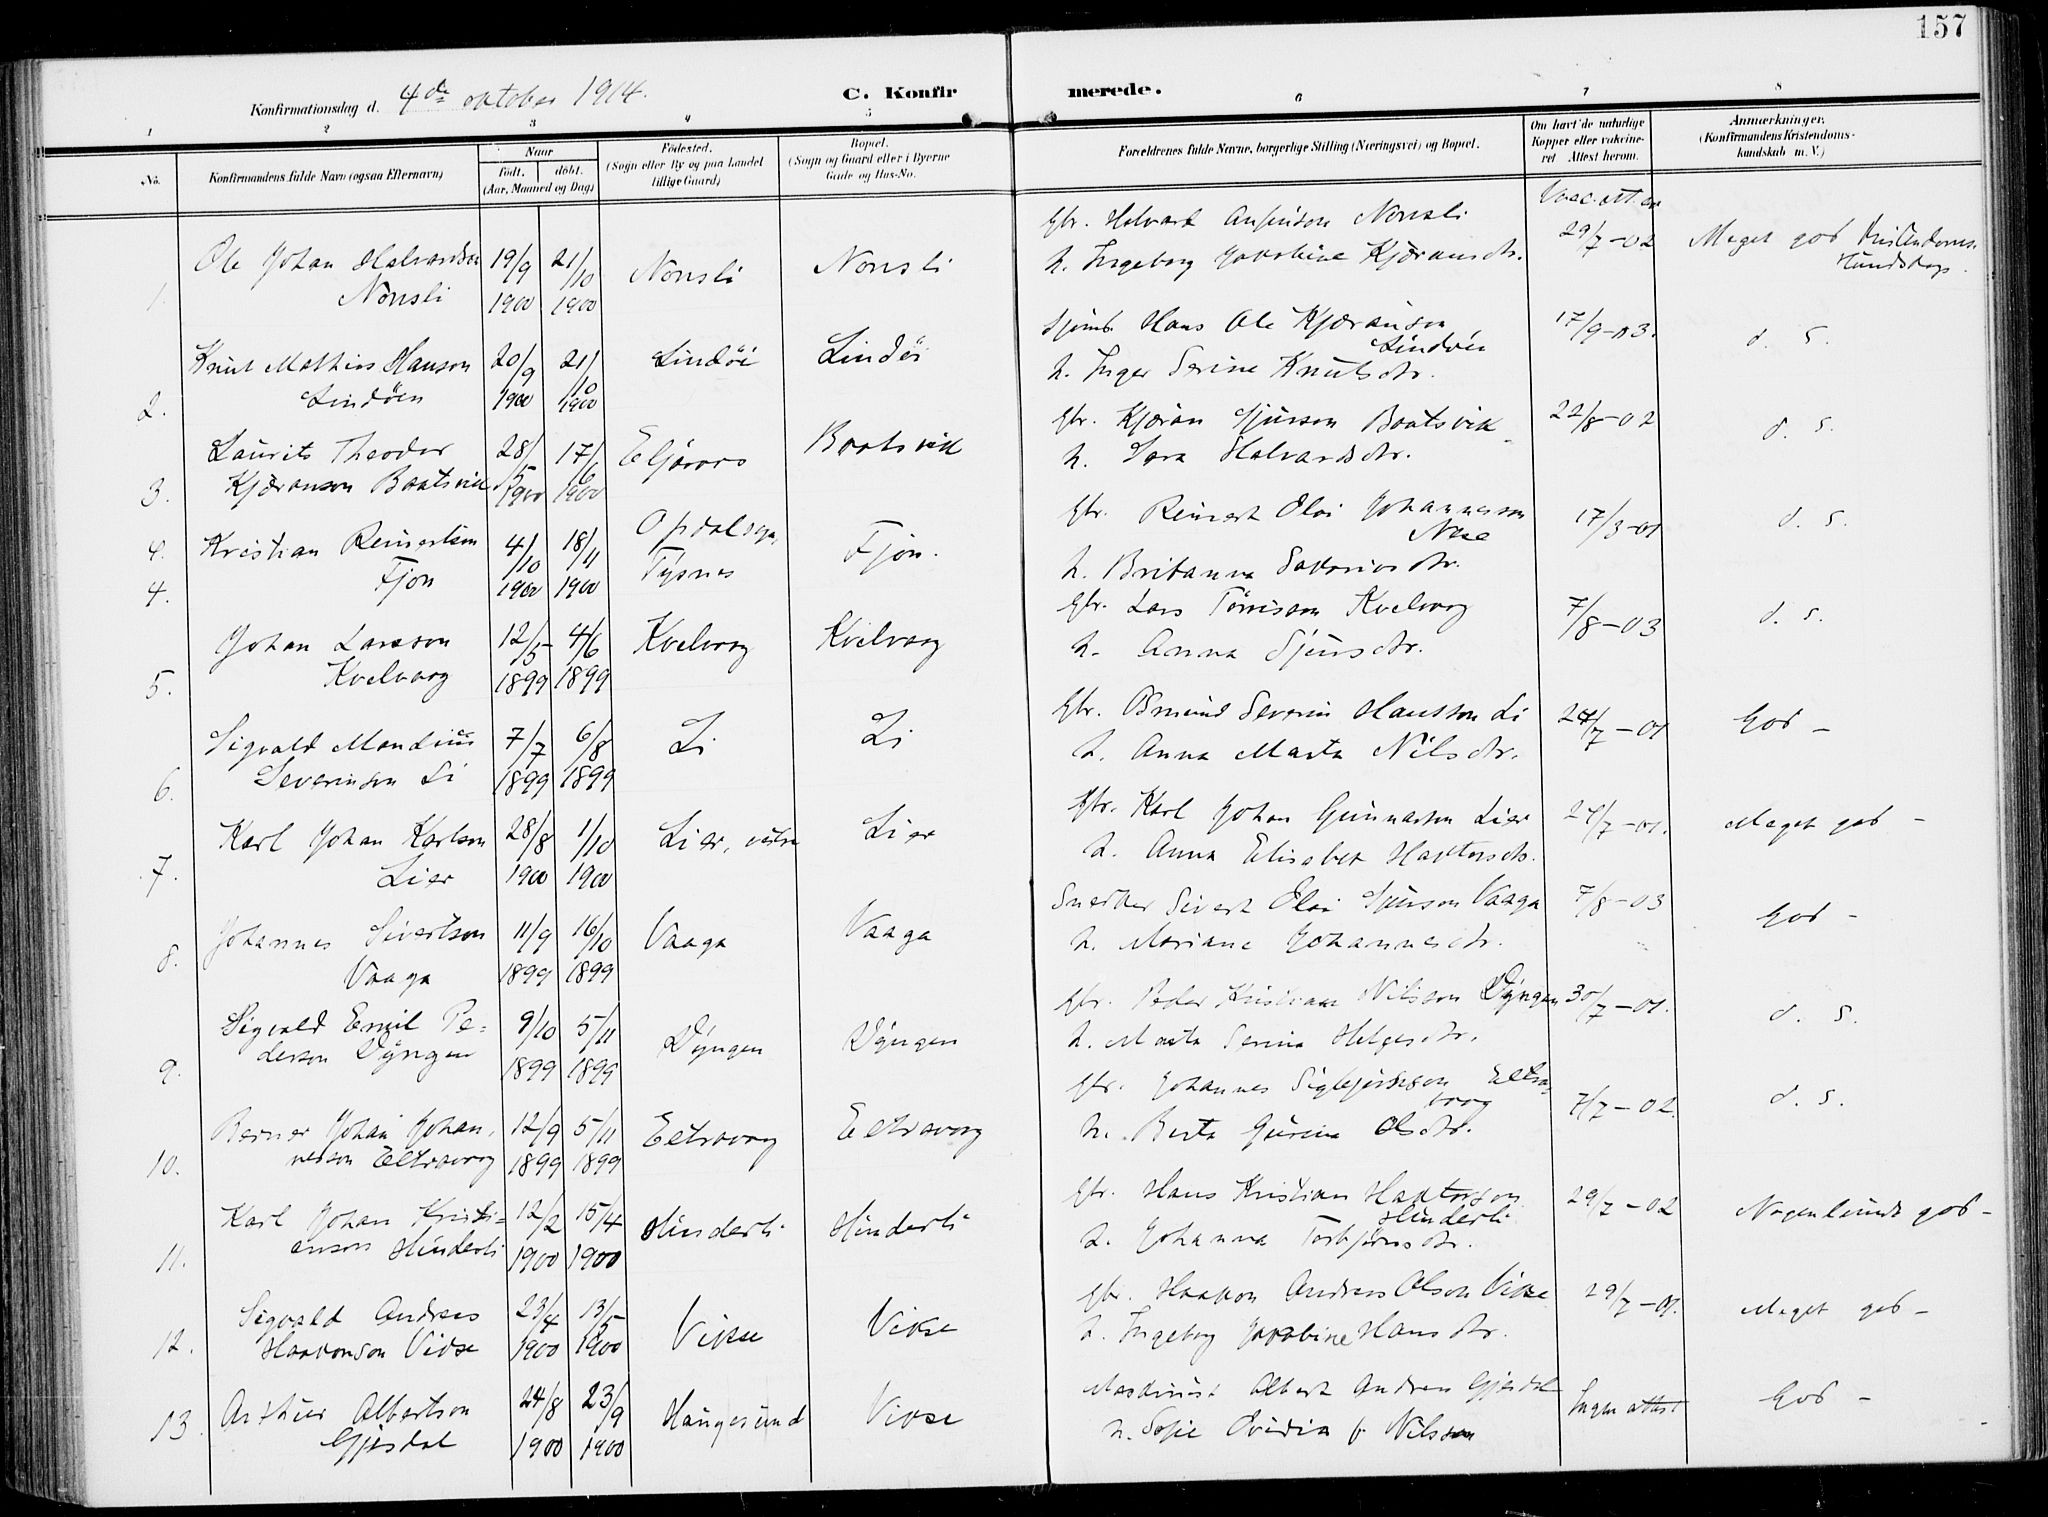 157
Konfirmationsdag d. 4de oktober 1914.
C. Konfirmerede.
1 2 3 4 5 6 7 8
No.
Konfirmandens fulde Navn (ogsaa Efternavn)
Naar
født. døbt.
(Aar, Maaned og Dag)
Fødested.
(Sogn eller By og paa Landet
tillige Gaard)
Bopæl.
(Sogn og Gaard eller i Byerne
Gade og Hus-No.
Forældrenes fulde Navne, borgerlige Stilling (Næringsvei) og Bopæl.
Om havt de naturlige
Kopper eller vakcine-
ret Attest herom.
Anmærkninger.
(Konfirmandens Kristendoms-
kundskab m. V.)
1. Ole Johan Halvardson
Nonsli
19/9 1900 21/10 1900
Nonsli Nonsli
Gbr. Halvard Nonsli
h. Ingeborg Jakobine Kjæransdtr.
Vacc. att. av
29/7-02
Meget god Kristendoms
kundskap.
2. Knut Mathias Hanson
Lindöen
20/9 1900 21/10 1900
Lindöi Lindöi
Hans Ole Kjæranson
Lindöen
h. Inger Serine Knutsdtr.
17/9-03.
d. s.
3. Laurits Theodor
Kjæranson Baatsvik
28/5 1900 17/6 1900
Baatsvik
Gbr. Kjæran Sjurson Baatsvik
h. Sara Halvardsdtr.
22/8-02
d. s.
4. Kristian Reinertson
Fjon
4/10 1900 18/11 1900
Opdalsogn,
Tysnes
Fjon.
Gbr. Reinert Elai Johanneson
h. Britanna Sakariasdtr.
17/3-01
d. s.
5. Johan Larsson
Kvelvaag
12/5 1899 4/6 1899
Kvelvaag Kvelvaag
Gbr. Lars Törrisson Kvelvaag
h. Anna Sjursdtr.
7/8-03
d. s.
6. Sigvald Mandius
Severinson Li
7/7 1899 6/8 1899
Li Li
Gbr. Severin Hansson Li
h. Anna Marta Nilsdtr.
/7-01
God -
7. Karl Johan Karlson
Lier
28/8 1900 1/10 1900
Lier, Lier
Gbr. Karl Johan Gunnarson Lier
h. Anna Elisabet Haktorsdtr.
24/7-01.
Meget god -
8. Johannes Sivertson
Vaaga
11/9 1899 16/10 1899
Vaaga Vaaga
Snedker Sivert Elai Sjurson Vaaga
h. Mariane Johannesdtr.
7/8-03
God -
9. Sigvald Emil Pe-
derson Dyngen
9/10 1899 5/11 1899
Dyngen Dyngen
Gbr. Peder Kristian Nilsson Dyngen
h. Marta Serina Helgesdtr.
30/7-01.
d. s.
10. Berner Johan Johan-
nesson Eltravaag
12/9 1899 5/11 1899
Eltravaag Eltravaag
Gbr. Johannes Sigbjörnson Eltra-
vaag
h. Berta Gurina Olsdtr.
7/7-02.
d. s.
11. Karl Johan Kristi-
anson Hinderli
12/2 1900 15/4 1900
Hinderli Hinderli
Gbr. Hans Kristian Haktorson
Hinderli
h. Johanna Torbjörnsdtr.
29/7-02
Nogenlunde god -
12. Sigvald Andreas
Haakonson Vikse
23/4 1900 13/5 1900
Vikse Vikse
Gbr. Haakon Andreas Olson Vikse
h. Ingeborg Jakobine Hansdtr.
29/7-01.
Meget god -
13. Arthur Albertson
Gjesdal
24/8 1900 23/9 1900
Haugesund Vikse
Maskinist Albert Andreas Gjesdal
h. Sofie Ovidia f. Nilsson
Ingen attest
God -